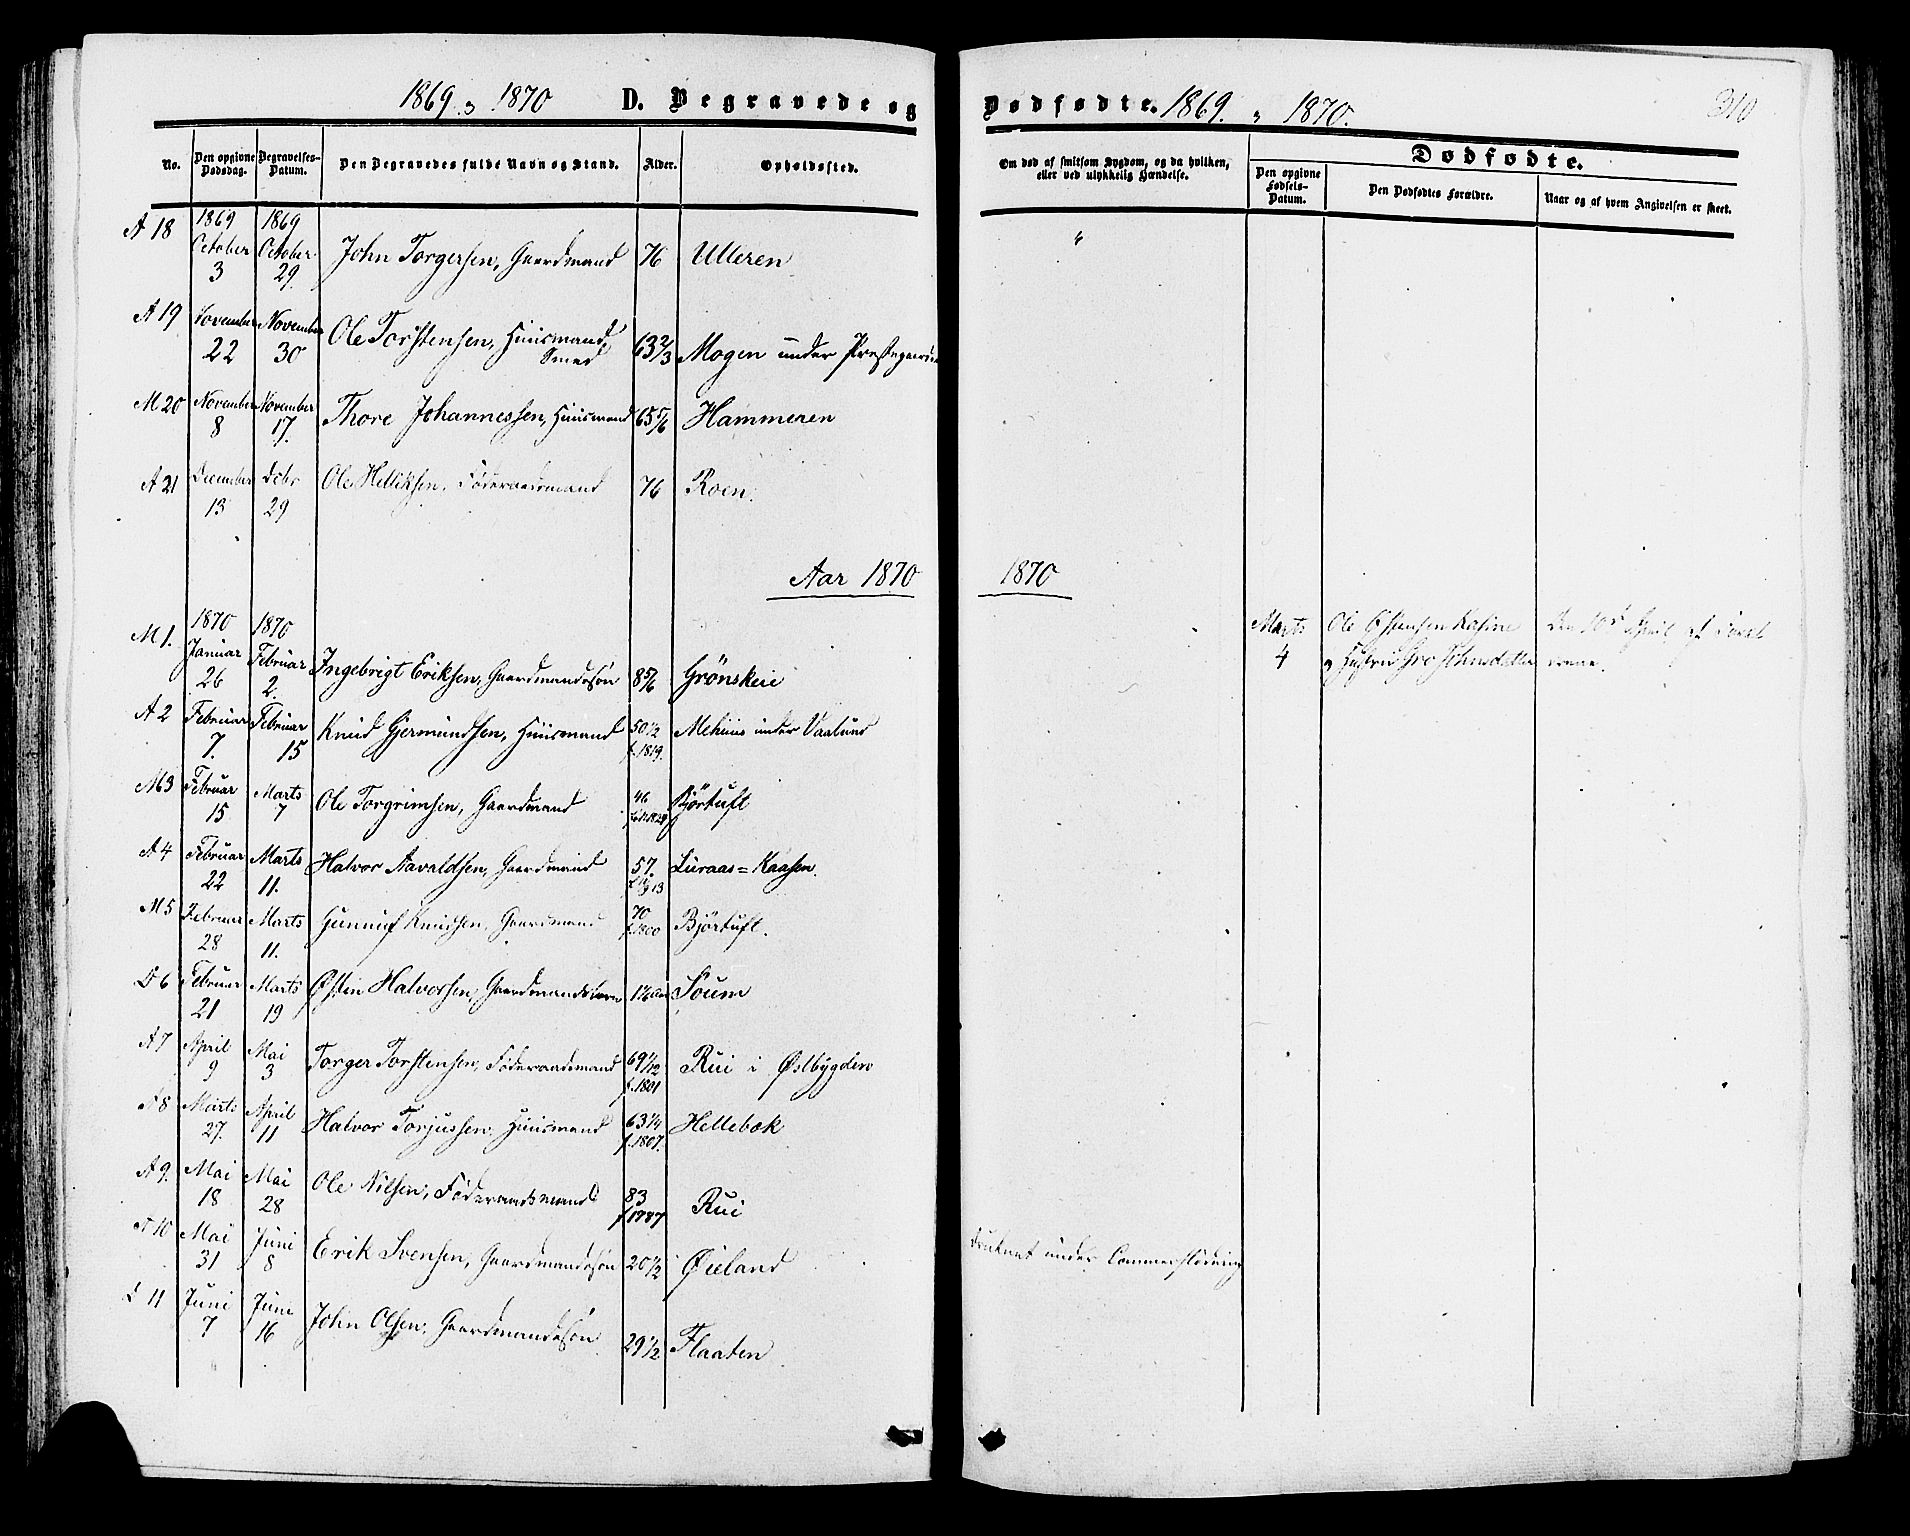 1869 & 1870 D. Begravede og Dødfødte. 1869. & 1870. 310
No. Den opgivne Dødsdag. Begravelses-Datum. Den Begravedes fulde Navn og Stand. Alder. Opholdssted.
Om død af smitsom Sygdom, og da hvilken, eller ved ulykkelig Hændelse.
Dødfødte.
Den opgivne Fødsels-Datum. Den Dødfødtes Forældre. Naar og af hvem Angivelsen er skeet.
A 18 1869 October 3 1869 October 29. John Torgersen, Gaardmand 76 Ulleren "
A 19 November 22 November 30 Ole Torstensen, Huusmand, Smed 63 2/3 Mogen under Prestegaarden
M 20 November 8 November 17. Thore Johannessen, Huusmand 65 5/6 Hammeren
A 21 December 13 Debr 29 Ole Helliksen, Föderaadsmand 76 Roen.
Aar 1870 1870
M 1. 1870 Januar 26 1870 Februar 2. Ingebrigt Eriksen, Gaardmandssøn 8 5/6 Grönskeie
Marts 4 Ole Østensen Kasine & Hustru Gro Johnsdatter Den 10d April af Foræl drene.
A 2 Februar 7. Februar 15 Knud Gjermundsen, Huusmand 50 1/2 f. 1819. Mehuus under Vaalund
M 3 Februar 15 Marts 7 Ole Torgrimsen, Gaardmand 46 Björtuft
A 4 Februar 22 Marts 11. Halvor Aavaldsen, Gaardmand 57. f. 1813 Luraas=Kaasen.
M 5 Februar 28 Marts 11. Gunnuf Knudsen, Gaardmand 70 f. 1800 Björtuft.
D 6 Februar 21 Marts 19 Østen Halvorsen, Gaardmandsbarn Söum
A 7 April 9 Mai 3 Torger Torstensen, Föderaadsmand 69 1/12 f. 1801 Rui i Østbygden
8 Marts 27. April 11 Halvor Torjussen, Huusmand 63 1/4 f. 1807. Hellebæk
A 9. Mai 18 Mai 28 Ole Nilsen, Föderaadsmand 83 f 1787 Rui
A 10 Mai 31 Juni 8 Erik Svensen, Gaardmandssøn 20 1/2 Øieland Druknet under Tømmerflødning
11 Juni 7 Juni 16 John Olsen, Gaardmandssøn. 29 1/2 Flaaten